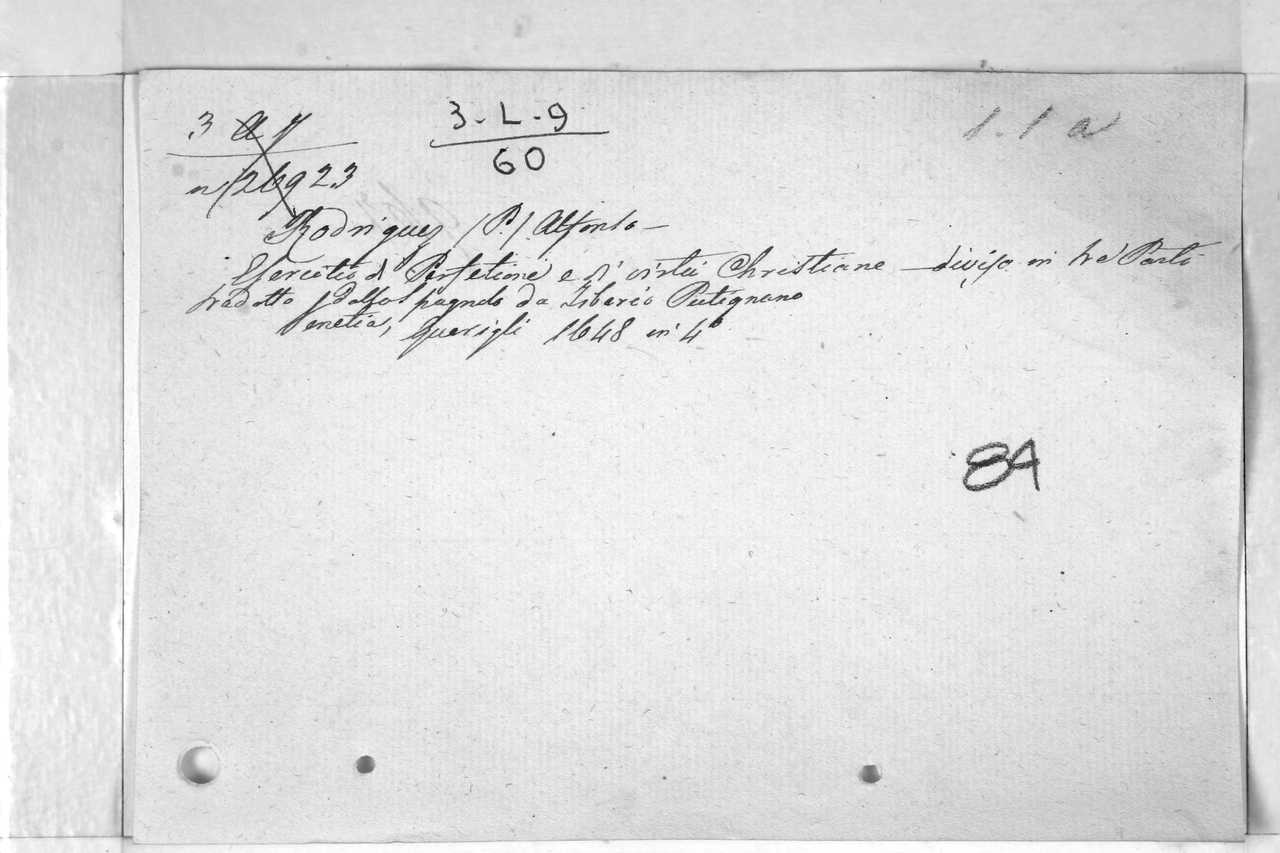 3 a 7
3-L-9
60
1.1 a
n 26923
Rodriguez (P.) Alfonso —
Esercitio di Perfetione e di virtù Christiane — diviso in tre Parti
tradotto dallo Spagnolo da Tiberio Putignano
Venetia, Guerigli 1648 in 4°
84